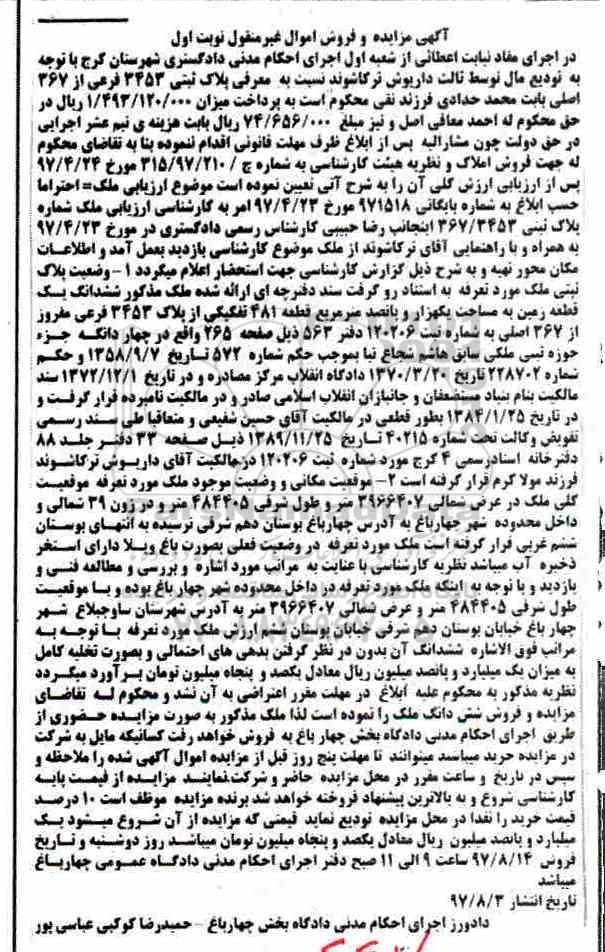 آگهی مزایده و فروش اموال غیرمنقول نوبت اول
در اجرای مفاد نیابت اعطائی از شعبه اول اجرای احکام مدنی دادگستری شهرستان کرج با توجه
به تودیع مال توسط ثالث داریوش ترکاشوند نسبت به معرفی پلاک ثبتی ۳۴۵۳ فرعی از ۳۶۷
اصلی بابت محمد حدادی فرزند نقی محکوم است به پرداخت میزان ۱/۴۹۳/۱۲۰/۰۰۰ ریال در
حق محکوم له احمد معافی اصل و نیز مبلغ ۷۴/۶۵۶/۰۰۰ ریال بابت هزینه ی نیم عشر اجرایی
در حق دولت چون مشارالیه پس از ابلاغ ظرف مهلت قانونی اقدام ننموده بنا به تقاضای محکوم
له جهت فروش املاک و نظریه هیئت کارشناسی به شماره ج / ۳۱۵/۹۷/۲۱۰ مورخ ۹۷/۴/۲۴
پس از ارزیابی ارزش کلی آن را به شرح آتی تعیین نموده است موضوع ارزیابی ملک= احتراما
حسب ابلاغ به شماره بایگانی ۹۷۱۵۱۸ مورخ ۹۷/۴/۲۳ امر به کارشناسی ارزیابی ملک شماره
پلاک ثبتی ۳۶۷/۳۴۵۳ اینجانب رضا حبیبی کارشناس رسمی دادگستری در مورخ ۹۷/۴/۲۳
به همراه و با راهنمایی آقای ترکاشوند از ملک موضوع کارشناسی بازدید بعمل آمد و اطلاعات
مکان محور تهیه و به شرح ذیل گزارش کارشناسی جهت استحضار اعلام میگردد ۱- وضعیت پلاک
ثبتی ملک مورد تعرفه به استناد رو گرفت سند دفترچه ای ارائه شده ملک مذکور ششدانگ یک
قطعه زمین به مساحت یکهزار و پانصد مترمربع قطعه ۴۸۱ تفکیکی از پلاک ۳۴۵۳ فرعی مفروز
از ۳۶۷ اصلی به شماره ثبت ۱۲۰۲۰۶ دفتر ۵۶۳ ذیل صفحه ۲۶۵ واقع در چهار دانگه جزء
حوزه ثبتی ملکی سابق هاشم شجاع نیا بموجب حکم شماره ۵۷۲ تاریخ ۱۳۵۸/۹/۷ و حکم
شماره ۲۲۸۷۰۲ تاریخ ۱۳۷۰/۳/۲۰ دادگاه انقلاب مرکز مصادره و در تاریخ ۱۳۷۲/۱۲/۱ سند
مالکیت بنام بنیاد مستضعفان و جانبازان انقلاب اسلامی صادر و در مالکیت نامبرده قرار گرفت و
در تاریخ ۱۳۸۴/۱/۲۵ بطور قطعی در مالکیت آقای حسین شفیعی و متعاقبا طی سند رسمی
تفویض وکالت تحت شماره ۴۰۲۱۵ تاریخ ۱۳۸۹/۱۱/۲۵ ذیل صفحه ۳۳ دفتر جلد ۸۸
دفترخانه اسناد رسمی ۴ کرج مورد شماره ثبت ۱۲۰۲۰۶ در مالکیت آقای داریوش ترکاشوند
فرزند مولا کرم قرار گرفته است ۲- موقعیت مکانی و وضعیت موجود ملک مورد تعرفه موقعیت
کلی ملک در عرض شمالی ۳۹۶۶۴۰۷ متر و طول شرقی ۴۸۴۴۰۵ متر و در زون ۳۹ شمالی و
داخل محدوده شهر چهارباغ به آدرس چهارباغ بوستان دهم شرقی نرسیده به انتهای بوستان
ششم غربی قرار گرفته است ملک مورد تعرفه در وضعیت فعلی بصورت باغ ویلا دارای استخر
ذخیره آب میباشد نظریه کارشناسی با عنایت به مراتب مورد اشاره و بررسی و مطالعه فنی و
بازدید و با توجه به اینکه ملک مورد تعرفه در داخل محدوده شهر چهار باغ بوده و با موقعیت
طول شرقی ۴۸۴۴۰۵ متر و عرض شمالی ۳۹۶۶۴۰۷ متر به آدرس شهرستان ساوجبلاغ شهر
چهار باغ خیابان بوستان دهم شرقی خیابان بوستان ششم ارزش ملک مورد تعرفه با توجه به
مراتب فوق الاشاره ششدانگ آن بدون در نظر گرفتن بدهی های احتمالی و بصورت تخلیه کامل
به میزان یک میلیارد و پانصد میلیون ریال معادل یکصد و پنجاه میلیون تومان برآورد میگردد
نظریه مذکور به محکوم علیه ابلاغ در مهلت مقرر اعتراضی به آن نشد و محکوم له تقاضای
مزایده و فروش شش دانگ ملک را نموده است لذا ملک مذکور به صورت مزایده حضوری از
طریق اجرای احکام مدنی دادگاه بخش چهار باغ به فروش خواهد رفت کسانیکه مایل به شرکت
در مزایده خرید میباشند میتوانند تا مهلت پنج روز قبل از مزایده اموال آگهی شده را ملاحظه و
سپس در تاریخ و ساعت مقرر در محل مزایده حاضر و شرکت نمایند مزایده از قیمت پایه
کارشناسی شروع و به بالاترین پیشنهاد فروخته خواهد شد برنده مزایده موظف است ۱۰ درصد
قیمت خرید را نقدا در محل مزایده تودیع نماید قیمتی که مزایده از آن شروع میشود یک
میلیارد و پانصد میلیون ریال معادل یکصد و پنجاه میلیون تومان میباشد روز دوشنبه و تاریخ
فروش ۹۷/۸/۱۴ ساعت ۹ الی ۱۱ صبح دفتر اجرای احکام مدنی دادگاه عمومی چهارباغ
میباشد
تاریخ انتشار ۹۷/۸/۳
دادورز اجرای احکام مدنی دادگاه بخش چهارباغ - حمیدرضا کوکبی عباسی پور